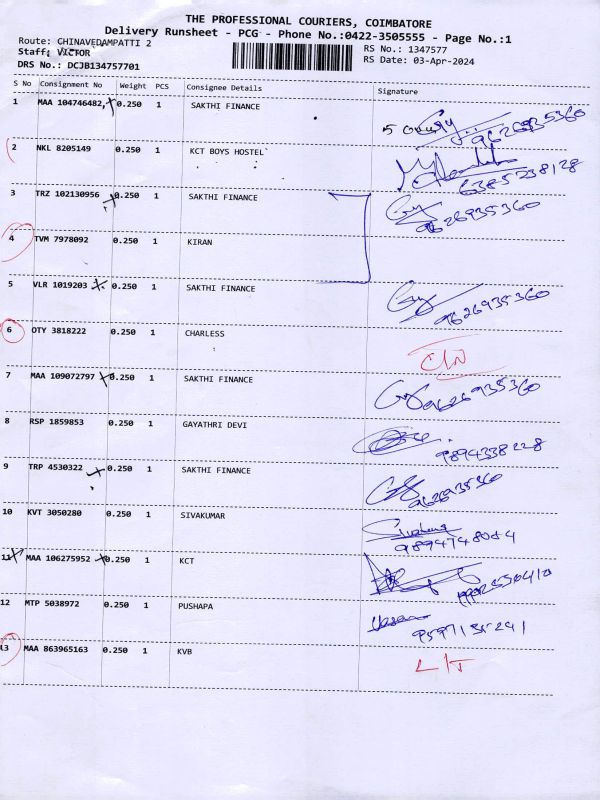 THE PROFESSIONAL COURIERS, COIMBATORE
Delivery Runsheet - PCG - Phone No.:0422-3505555 - Page No.:1
Route: CHINAVEDAMPATTI 2
RS No.: 1347577
Staff: VICTOR
RS Date: 03-Apr-2024
DRS No.: DCJB134757701
S No Consignment No Weight PCS Consignee Details Signature
1 MAA 104746482, 0.250 1 SAKTHI FINANCE
9626935360
2 NKL 8205149 0.250 1 KCT BOYS HOSTEL
6385238128
3 TRZ 102130956 0.250 1 SAKTHI FINANCE
9626935360
4 TVM 7978092 0.250 1 KIRAN
5 VLR 1019203 0.250 1 SAKTHI FINANCE
9626935360
6 OTY 3818222 0.250 1 CHARLESS
7 MAA 109072797 0.250 1 SAKTHI FINANCE
9626935360
8 RSP 1859853 0.250 1 GAYATHRI DEVI
9894338228
9 TRP 4530322 0.250 1 SAKTHI FINANCE
10 KVT 3050280 0.250 1 SIVAKUMAR
9894748084
11 MAA 106275952 0.250 1 KCT
12 MTP 5038972 0.250 1 PUSHAPA
13 MAA 863965163 0.250 1 KVB
L/T